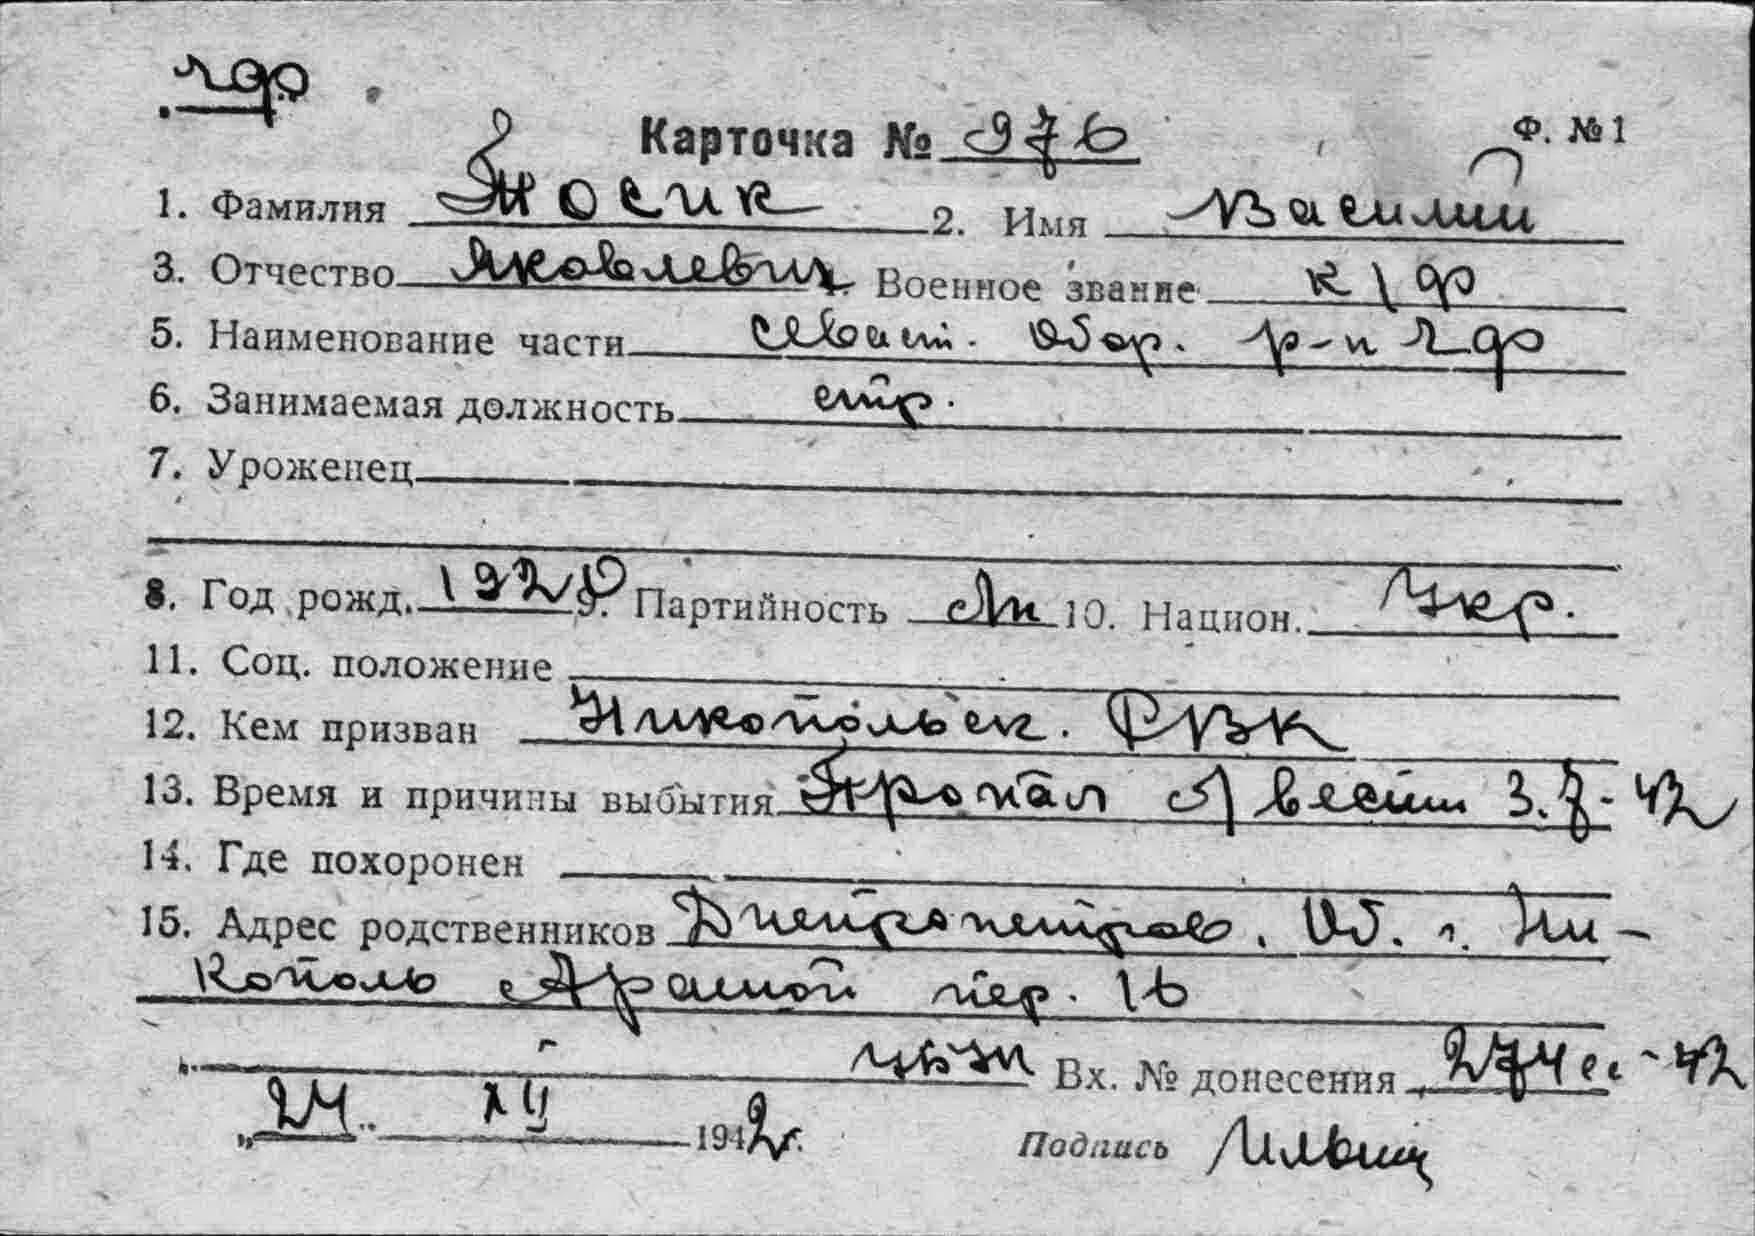 чф
Карточка № 976
Ф. № 1
1. Фамилия Носик 2. Имя Василий
3. Отчество Яковлевич Военное звание к/ф
5. Наименование части Севаст. Обор. р-н ЧФ
6. Занимаемая должность стр.
7. Уроженец
8. Год рожд. 1920 9. Партийность 10. Национ. Укр.
11. Соц. положение
12. Кем призван Никопольск. РВК
13. Время и причины выбытия Пропал б/вести 3.7.42
14. Где похоронен
15. Адрес родственников Днепропетров. Об. г. Ни-
кополь пер. 16
Вх. № донесения 274сс-42
„24" XII 1942г. Подпись